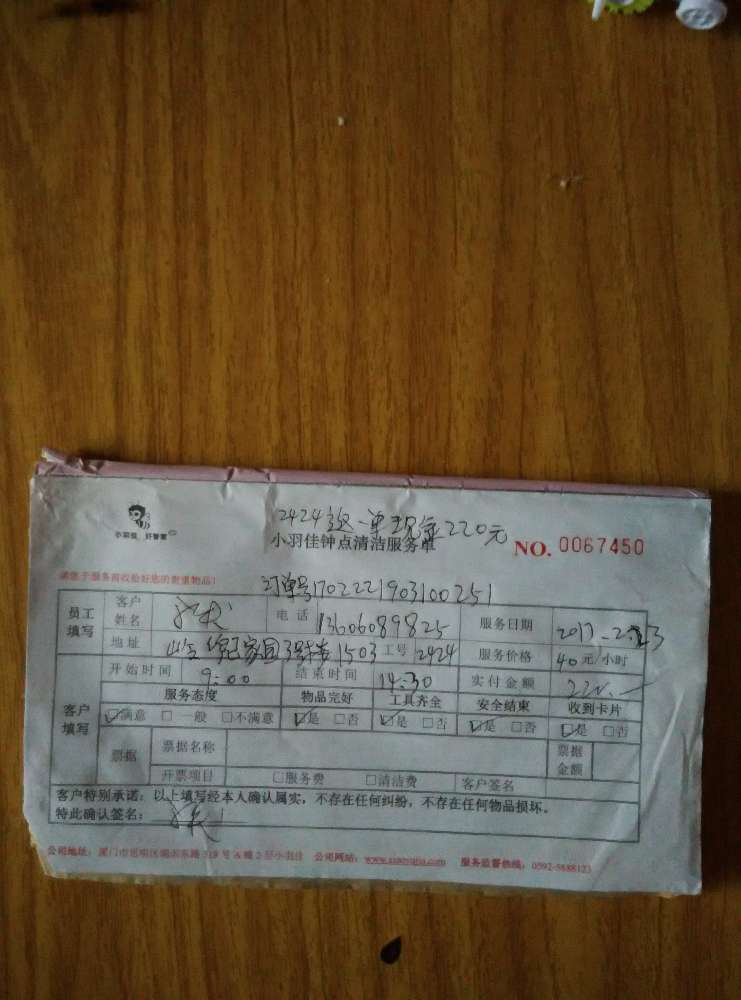 2424 一单现金220元
小羽佳 好管家
小羽佳钟点清洁服务单 NO. 0067450
请您于服务前收拾好您的贵重物品!
订单号170222190310025
员工填写 客户姓名 电话 13606089825 服务日期 2017.2.23
地址 家园 1503 工号 2424 服务价格 40元/小时
开始时间 9:00 结束时间 14:30 实付金额 220.-
客户填写 服务态度 物品完好 工具齐全 安全结束 收到卡片
☑满意 □一般 □不满意 ☑是 □否 ☑是 □否 ☑是 □否 ☑是 □否
票据 票据名称 票据金额
开票项目 □服务费 □清洁费 客户签名
客户特别承诺:以上填写经本人确认属实,不存在任何纠纷,不存在任何物品损坏。
特此确认签名:
公司地址:厦门市思明区 号 2 小羽佳 公司网站: 服务监督热线:0592-5888123